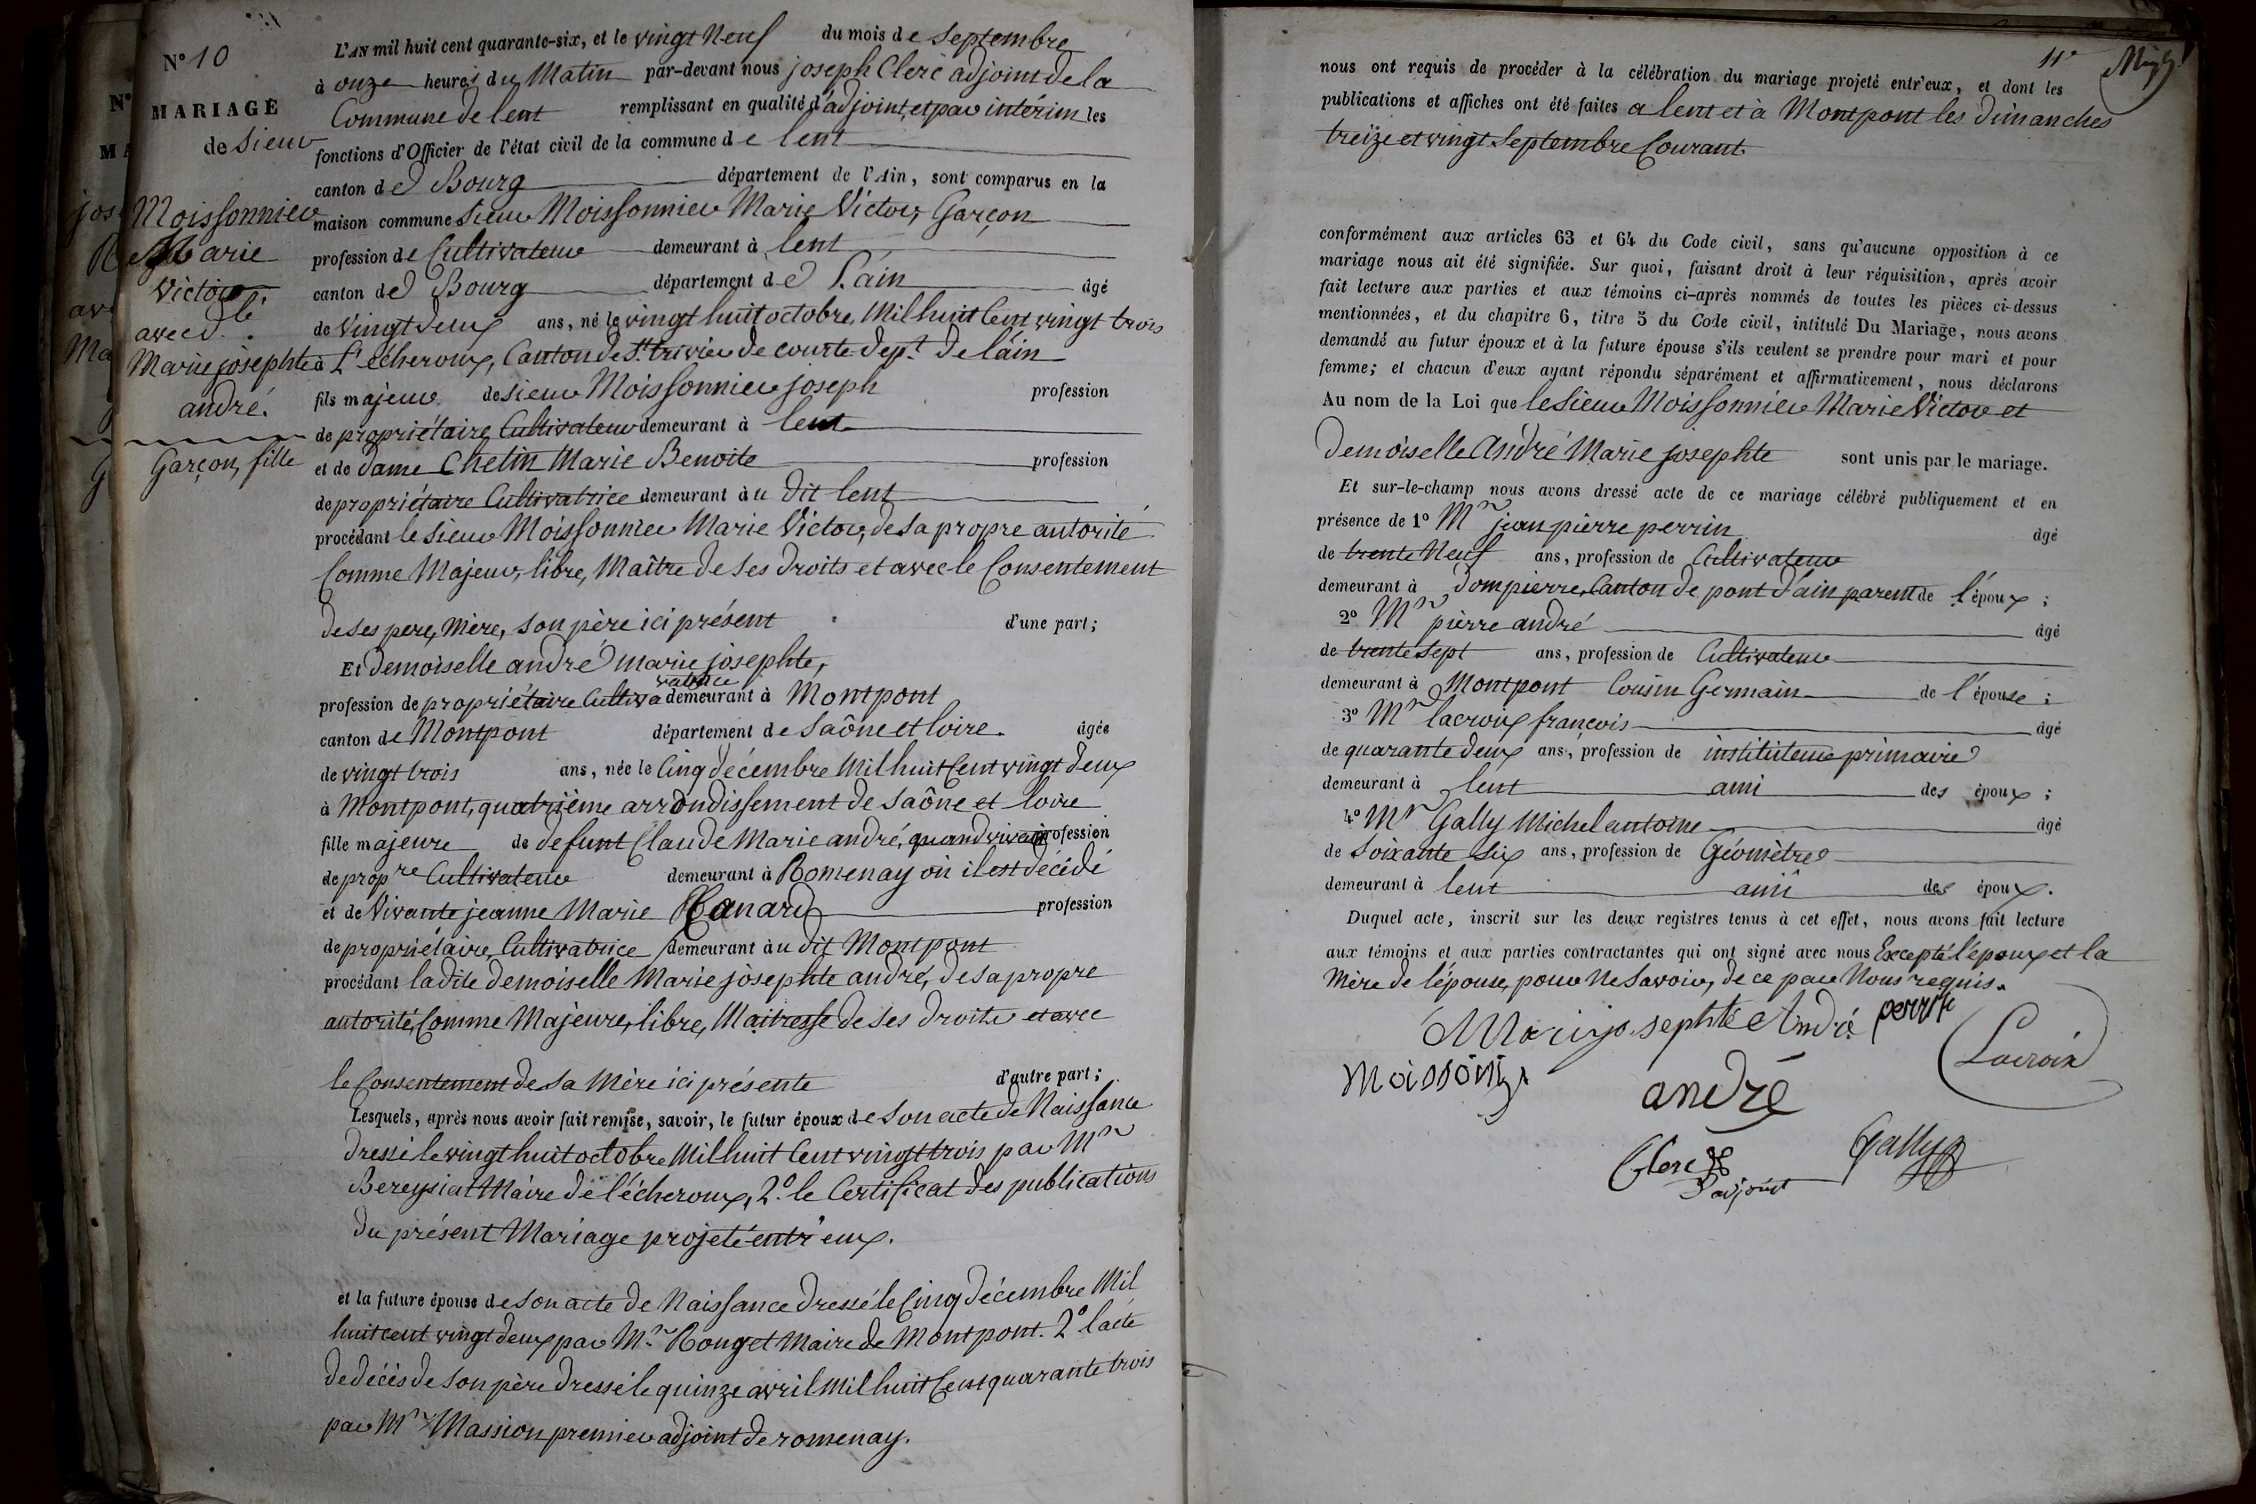 N° 10
MARIAGE
de Sieur
Moissonnier
Marie
Victor,
avec d.lle
Marie josephte
andré.
Garçon, fille
L'AN mil huit cent quarante-six, et le vingt Neuf du mois de Septembre
à onze heures du Matin par-devant nous joseph Clerc adjoint de la
Commune de lent remplissant en qualité d'adjoint, et par intérim les
fonctions d'Officier de l'état civil de la commune de lent
canton de Bourg département de l'Ain, sont comparus en la
maison commune Sieur Moissonnier Marie Victor, Garçon
profession de Cultivateur demeurant à lent
canton de Bourg département de l'ain âgé
de Vingt deux ans, né le vingt huit octobre, Mil huit Cent vingt trois
à L'écheroux, Canton de St trivier de courte. dept. de l'ain
fils majeur de sieur Moissonnier joseph profession
de propriétaire Cultivateur demeurant à lent
et de dame Chelin Marie Benoite profession
de propriétaire Cultivatrice demeurant àu dit lent
procédant le sieur Moissonnier Marie Victor, de sa propre autorité
Comme Majeur, libre, Maître de ses droits et avec le Consentement
de ses pere, Mère, son père ici présent d'une part;
Et demoiselle andré marie josephte,
vatrice
profession de propriétaire Cultiva demeurant à Montpont
canton de Montpont département de Saône et loire. âgée
de vingt trois ans, née le Cinq décembre Mil huit Cent vingt deux
à Montpont, quatrième arrondissement de Saône et loire
fille majeure de defunt Claude Marie andré, quand vivait profession
de propre Cultivateur demeurant à Romenay où il est décédé
et de Vivante jeanne Marie Renard profession
de propriétaire, Cultivatrice demeurant àu dit Montpont
procédant la dite demoiselle Marie josephte andré, de sa propre
autorité, Comme Majeure, libre, Maitresse de ses droits et avec
le Consentement de sa Mère ici présente d'autre part;
Lesquels, après nous avoir fait remise, savoir, le futur époux de son acte de Naissance
dressé le vingt huit octobre Mil huit Cent vingt trois par Mr
Bereysiat Maire de l'écheroux, 2° le Certificat des publications
du présent Mariage projeté entr'eux.
et la future épouse de son acte de Naissance dressé le Cinq décembre Mil
huit cent vingt deux par Mr Rouget Maire de Montpont. 2° l'acte
de décès de son père dressé le quinze avril Mil huit Cent quarante trois
par Mr Massion premier adjoint de romenay.
11e
nous ont requis de procéder à la célébration du mariage projeté entr'eux, et dont les
publications et affiches ont été faites a lent et à Montpont les dimanches
treize et vingt Septembre Courant
conformément aux articles 63 et 64 du Code civil, sans qu'aucune opposition à ce
mariage nous ait été signifiée. Sur quoi, faisant droit à leur réquisition, après avoir
fait lecture aux parties et aux témoins ci-après nommés de toutes les pièces ci-dessus
mentionnées, et du chapitre 6, titre 5 du Code civil, intitulé Du Mariage, nous avons
demandé au futur époux et à la future épouse s'ils veulent se prendre pour mari et pour
femme; et chacun d'eux ayant répondu séparément et affirmativement, nous déclarons
Au nom de la Loi que le Sieur Moissonnier Marie Victor et
Demoiselle André Marie josephte sont unis par le mariage.
Et sur-le-champ nous avons dressé acte de ce mariage célébré publiquement et en
présence de 1° Mr jean pierre perrin âgé
de trente Neuf ans, profession de Cultivateur
demeurant à dompierre, Canton de pont d'ain parent de l'époux;
2° Mr pierre andré âgé
de trente sept ans, profession de Cultivateur
demeurant à Montpont Cousin Germain de l'épouse;
3° Mr lacroix françois âgé
de quarante deux ans, profession de instituteur primaire
demeurant à lent ami des époux;
4° Mr Gally Michel antoine âgé
de Soixante six ans, profession de Géomètre
demeurant à lent ami des époux.
Duquel acte, inscrit sur les deux registres tenus à cet effet, nous avons fait lecture
aux témoins et aux parties contractantes qui ont signé avec nous Excepté l'époux et la
Mère de l'épouse, pour Ne Savoir, de ce par Nous requis.
Marijosephte André perrin
Lacroix
andré
Clerc Gally
adjoint